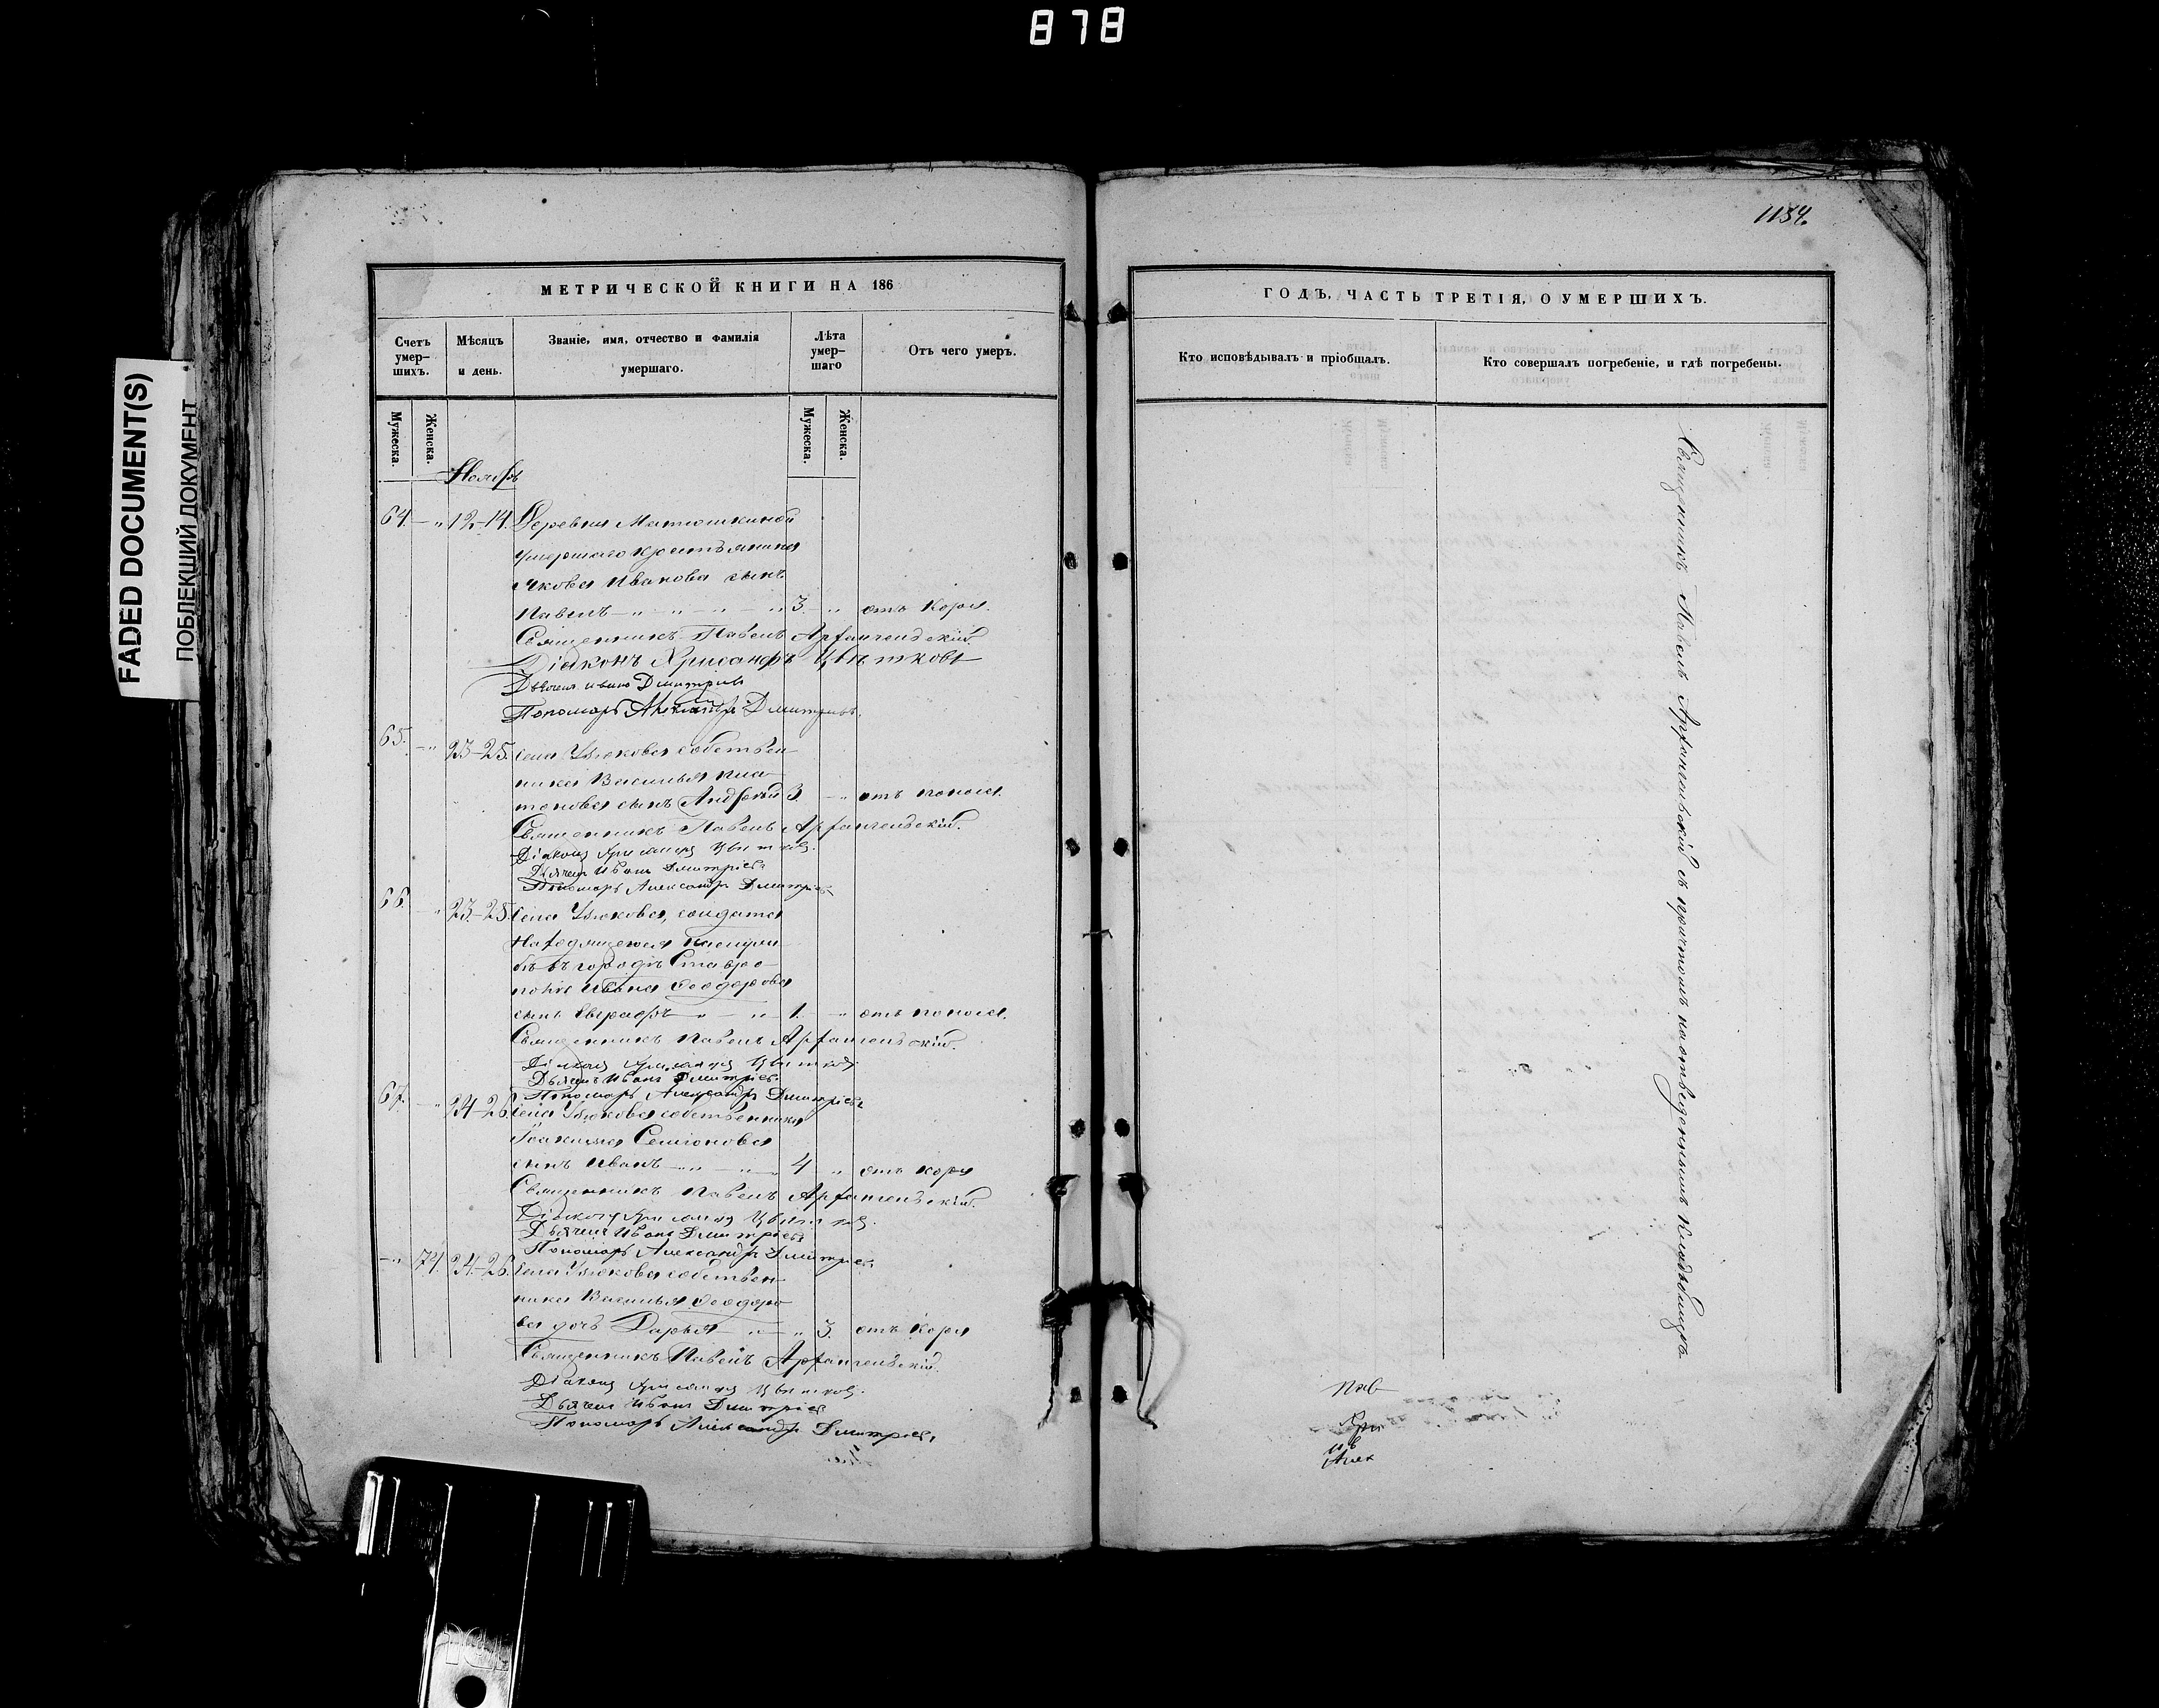 878
FADED DOCUMENT(S)
ПОБЛЕКШИЙ ДОКУМЕНТ
МЕТРИЧЕСКОЙ КНИГИ НА 186
Счетъ умер–шихъ.
Мѣсяцъ и день.
Званіе, имя, отчество и фамилія умершаго.
Лѣта умер–шаго
Отъ чего умеръ.
Мужеска.
Женска.
Мужеска.
Женска.
Ноябрь
64 – „ 12–14. Деревни Матюшкиной
умершаго крестьянина
Якова Иванова сынъ
Павелъ – „ – „ – „ – „ 3. „ отъ коря.
Священникъ Павелъ Архангельскій
Діаконъ Хрисанфъ Цвѣтковъ
Дьячекъ Иванъ Дмитріевъ
Пономарь Александръ Дмитріевъ.
65. – „ 23–25. Села собствен–
ника Василья Пла–
тонова сынъ Андрей 3. – „ отъ поноса.
Священникъ Павелъ Архангельскій.
Діаконъ Хрисанфъ Цвѣтковъ.
Дьячекъ Иванъ Дмитріевъ
Пономарь Александръ Дмитріевъ
66. „ 23–25. Села солдата
находящегося
въ городѣ Ставро–
Ивана Ѳеодорова
сынъ „ – „ 1. – „ отъ поноса.
Священникъ Павелъ Архангельскій.
Діаконъ Хрисанфъ Цвѣтковъ
Дьячекъ Иванъ Дмитріевъ
Пономарь Александръ Дмитріевъ
67. – „ 24–26. Села собственника
Іоакима Семіонова
сынъ Иванъ – „ – „ 4 „ отъ коря
Священникъ Павелъ Архангельскій.
Діаконъ Хрисанфъ Цвѣтковъ.
Дьячекъ Иванъ Дмитріевъ
Пономарь Александръ Дмитріевъ
– „ 74. 24–26. Села собствен–
ника Василья Ѳеодоро–
ва дочь Дарья – „ – „ 3. отъ коря
Священникъ Павелъ Архангельскій.
Діаконъ Хрисанфъ Цвѣтковъ.
Дьячекъ Иванъ Дмитріевъ
Пономарь Александръ Дмитріевъ
1154.
ГОДЪ, ЧАСТЬ ТРЕТІЯ, О УМЕРШИХЪ.
Кто исповѣдывалъ и пріобщалъ.
Кто совершалъ погребеніе, и гдѣ погребены.
Священникъ Павелъ Архангельскій съ причтомъ на отведенномъ кладбищѣ.
Пав
Хри
Ив
Алек